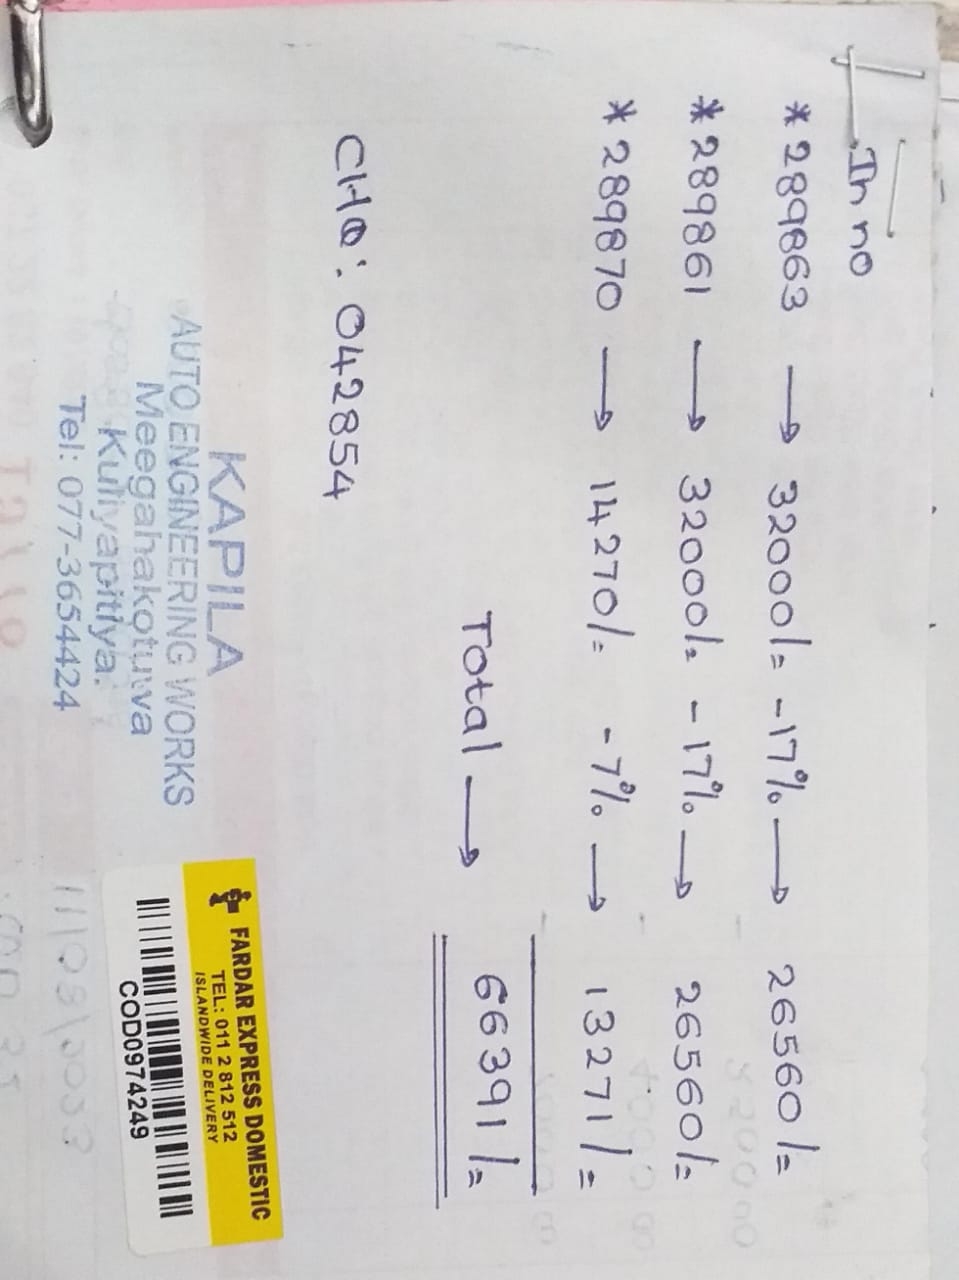 In no
* 289863 → 32000/= -17% → 26560/=
* 289861 → 32000/= -17% → 26560/=
* 289870 → 14270/= -7% → 13271/=
Total → 66391/=
CHQ: 042854
KAPILA
AUTO ENGINEERING WORKS
Meegahakotuwa
Kuliyapitiya.
Tel: 077-3654424
FARDAR EXPRESS DOMESTIC
TEL: 011 2 812 512
ISLANDWIDE DELIVERY
COD0974249